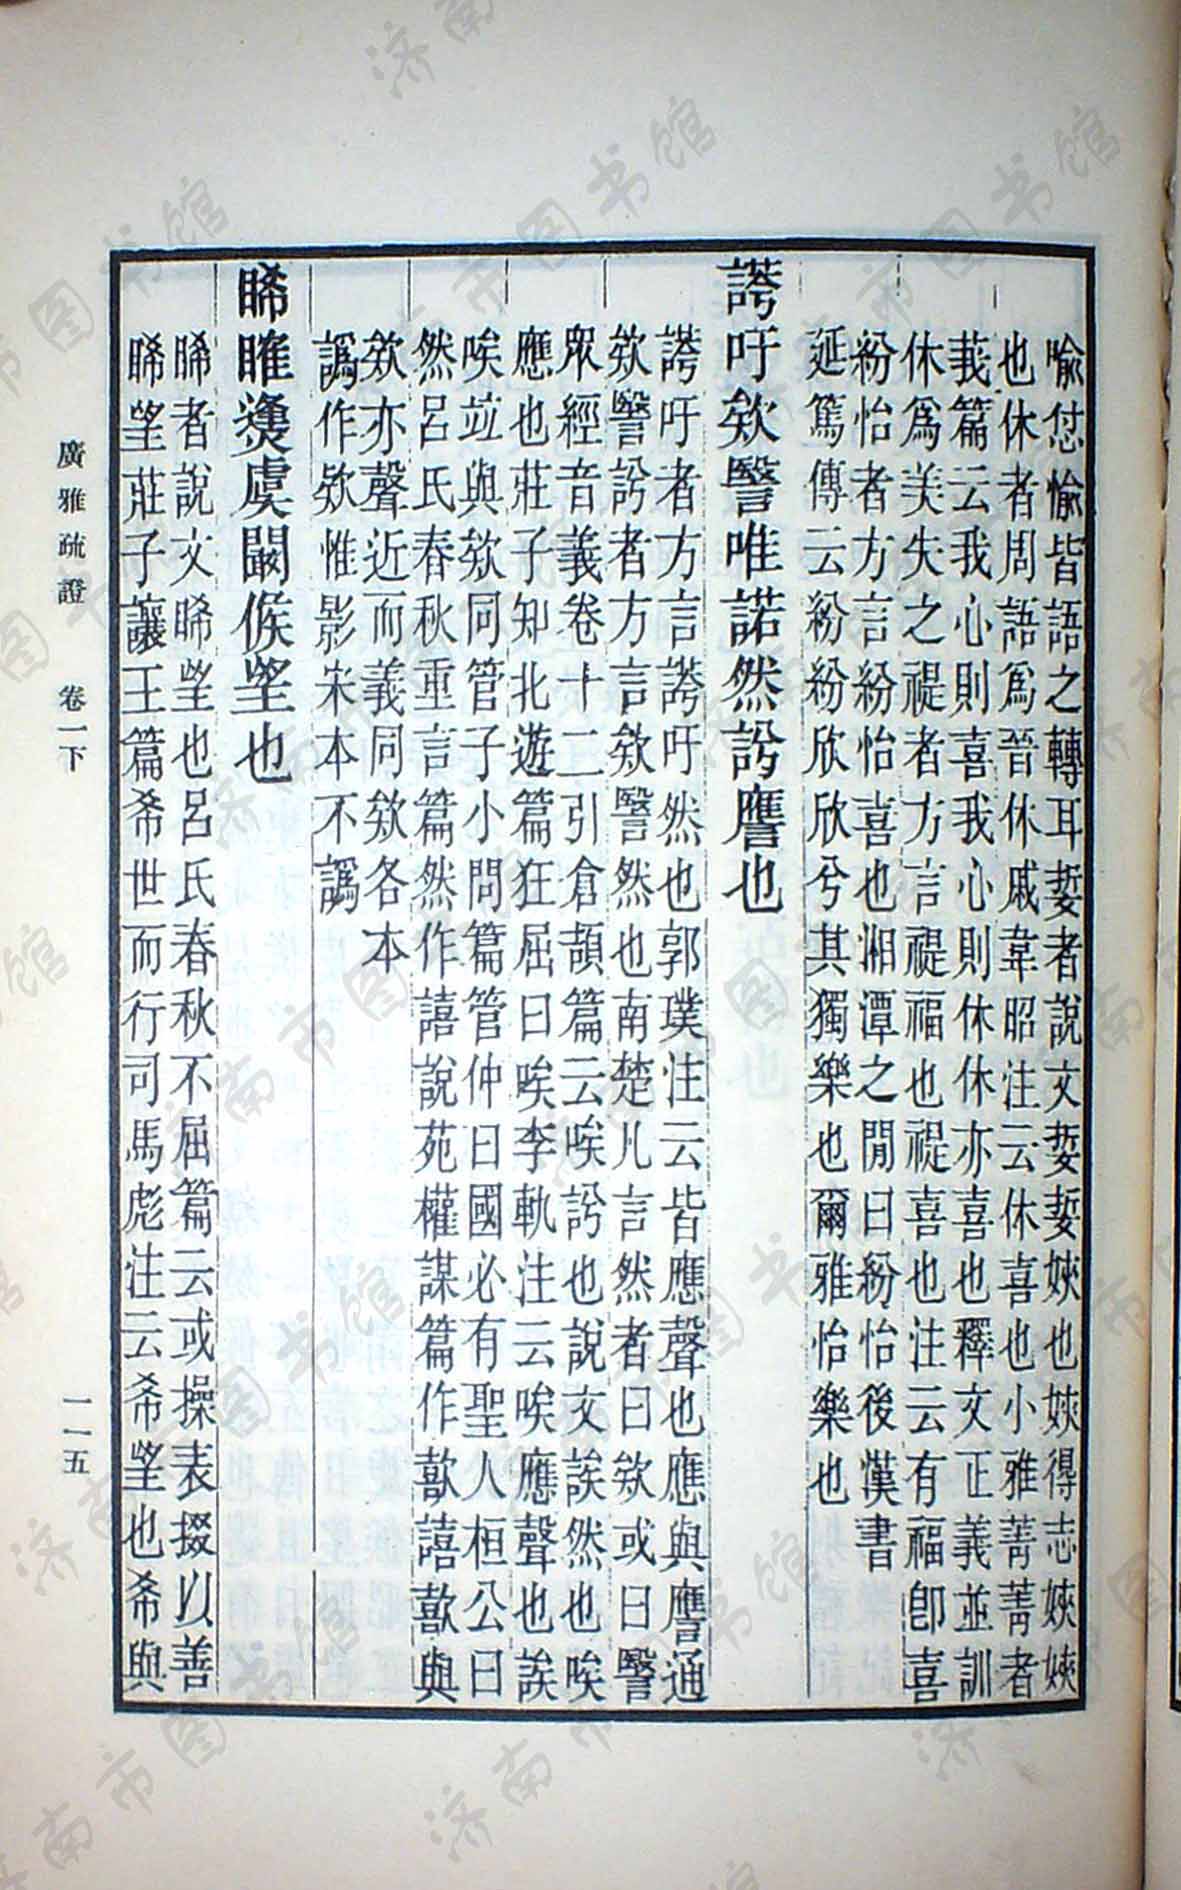 喩㤖愉皆語之轉耳婱者說文婱婱㛍也㛍得志㛍㛍
也休者周語爲晉休戚韋昭注云休喜也小雅菁菁者
莪篇云我心則喜我心則休休亦喜也釋文正義並訓
休爲美失之禔者方言禔福也禔喜也注云有福卽喜
紛怡者方言紛怡喜也湘潭之閒曰紛怡後漢書
延篤傳云紛紛欣欣兮其獨樂也爾雅怡樂也
謣吁欸譩唯諾然訡譍也
謣吁者方言謣吁然也郭璞注云皆應聲也應與譍通
欸譩訡者方言欸譩然也南楚凡言然者曰欸或曰譩
眾經音義卷十二引倉頡篇云唉訡也說文誒然也唉
應也莊子知北遊篇狂屈曰唉李軌注云唉應聲也誒
唉竝與欸同管子小問篇管仲曰國必有聖人桓公曰
然呂氏春秋重言篇然作譆說苑權謀篇作歖譆歖與
欸亦聲近而義同欸各本
譌作欵惟影宋本不譌
睎睢㷭虞闞候望也
睎者說文睎望也呂氏春秋不屈篇云或操表掇以善
睎望莊子讓王篇希世而行司馬彪注云希望也希與
廣雅疏證 卷一下
一一五
济南市图书馆